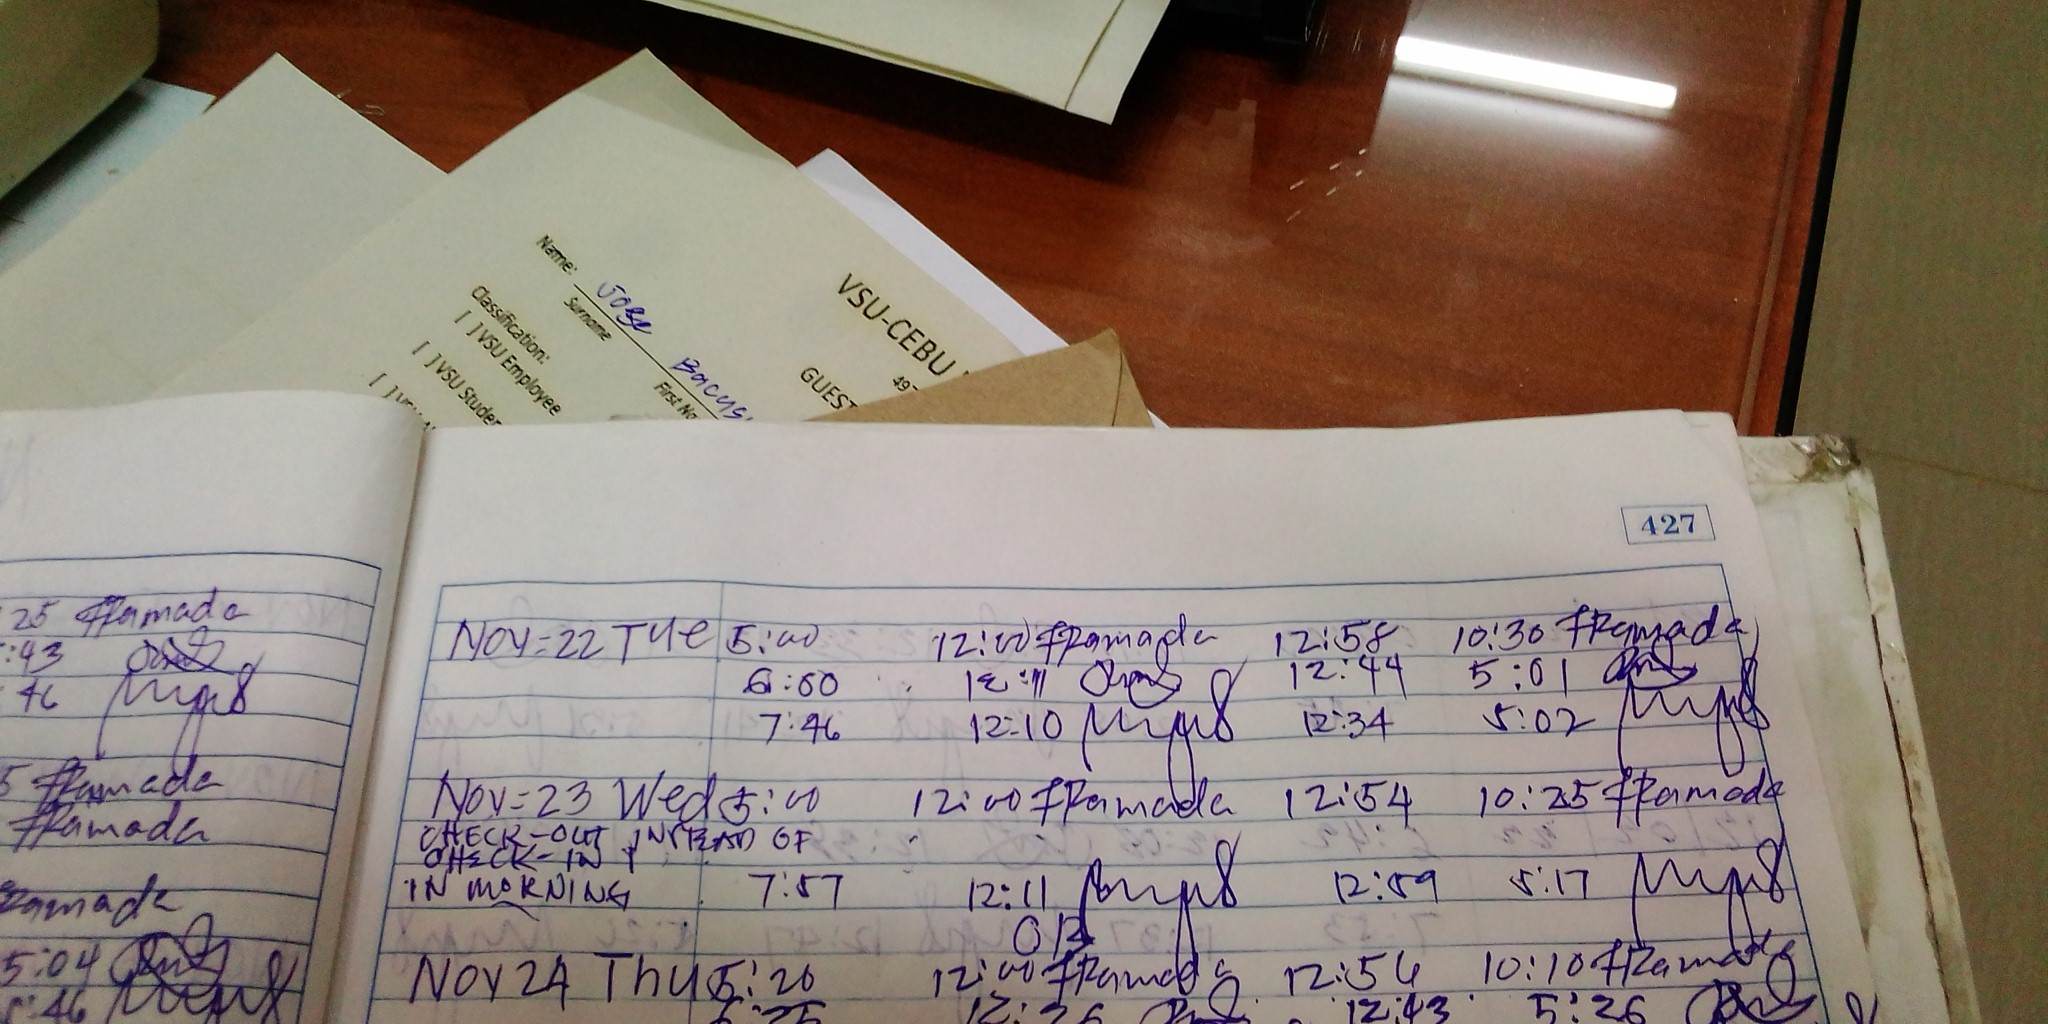 VSU-CEBU
497
GUEST
Name: Jose Bacus
Surname First Na
Classification:
[ ] VSU Employee
[ ] VSU Studen
427
25 FRamada
:43
46
5 FRamada
FRamada
Ramada
5:04
5:46
Nov-22 Tue 5:00 12:00 FRamada 12:58 10:30 FRamada
6:00 12:11 12:44 5:01
7:46 12:10 12:34 5:02
Nov-23 Wed 5:00 12:00 FRamada 12:54 10:25 FRamada
CHECK-OUT INSTEAD OF
CHECK-IN
IN MORNING 7:57 12:11 12:59 5:17
OB
Nov 24 Thu 5:20 12:00 FRamada 12:56 10:10 FRamada
6:25 12:26 12:43 5:26